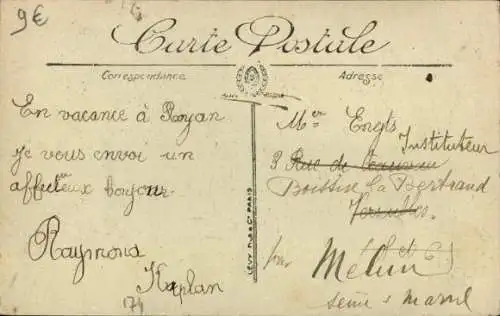 9€
Carte Postale
Correspondance
Adresse
En vacance à Royan
je vous envoi un
affectueux bonjour
Raymond
Kaplan
174
LÉVY FILS & Cie PARIS
Mer Engts
Instituteur
3 Rue de
Boissise la Bertrand
Versailles
par Melun
Seine & Marne